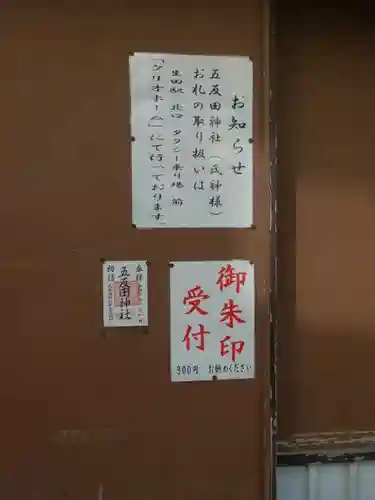 お知らせ
五反田神社(氏神様)
お札の取り扱いは
生田駅 北口 タクシー乗り場 前
「クリオホーム」にて行っております。
五反田神社
御朱印
受付
300円 お納めください